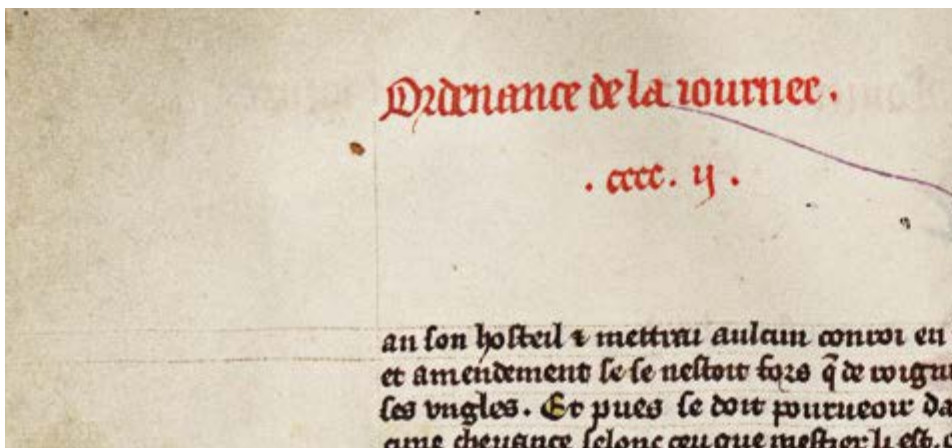 Ordenance de la iournee.
. cccc. ij .
an son hosteil ⁊ mettrai aulcun conroi en
et amendement se se nestoit fors q̃ de roignier
ses vngles. Et pues se doit pourueoir da
cune cheuance selonc ceu que mestier li est.